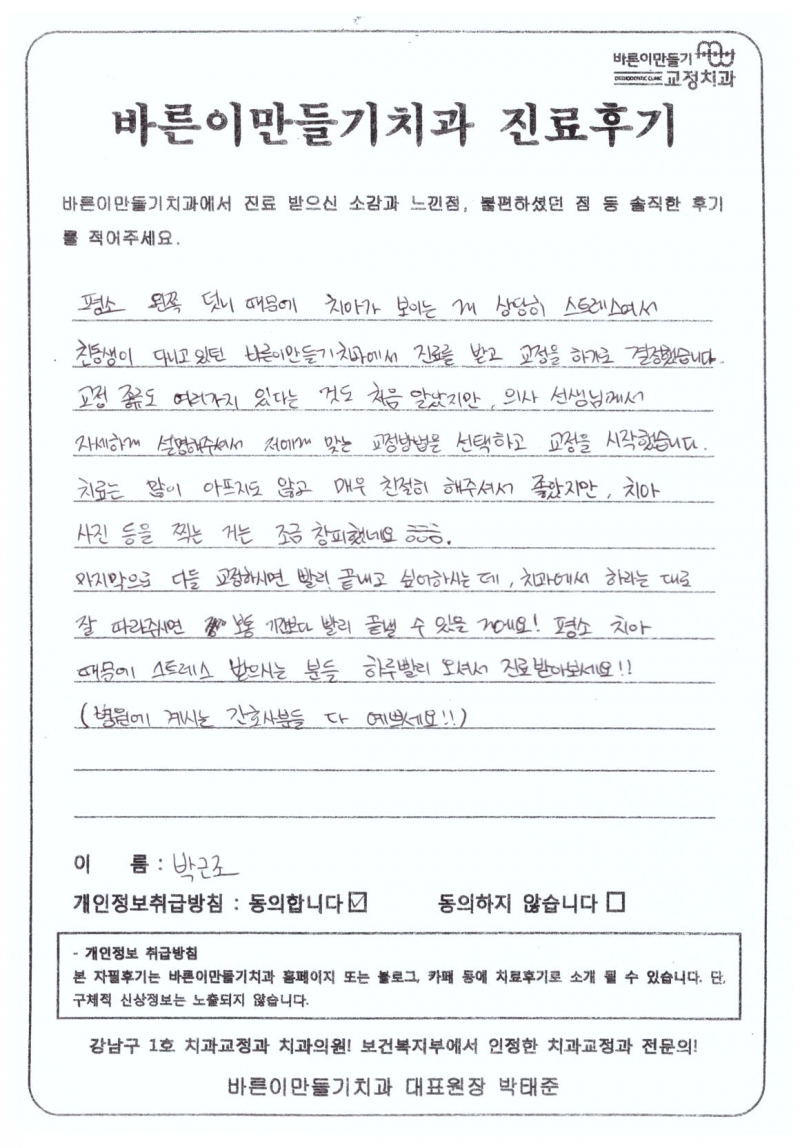 바른이만들기
ORTHODONTIC CLINIC 교정치과
바른이만들기치과 진료후기
바른이만들기치과에서 진료 받으신 소감과 느낀점, 불편하셨던 점 등 솔직한 후기
를 적어주세요.
평소 왼쪽 덧니 때문에 치아가 보이는 게 상당히 스트레스여서
친동생이 다니고 있던 바른이만들기치과에서 진료를 받고 교정을 하기로 결정했습니다.
교정 종류도 여러가지 있다는 것도 처음 알았지만, 의사 선생님께서
자세하게 설명해주셔서 저에게 맞는 교정방법을 선택하고 교정을 시작했습니다.
치료는 많이 아프지도 않고 매우 친절히 해주셔서 좋았지만, 치아
사진 등을 찍는 거는 조금 창피했네요 ㅎㅎㅎ.
마지막으로 다들 교정하시면 빨리 끝내고 싶어하시는 데, 치과에서 하라는 대로
잘 따라주시면 보통 기간보다 빨리 끝낼 수 있을 거에요! 평소 치아
때문에 스트레스 받으시는 분들 하루빨리 오셔서 진료받아보세요!!
(병원에 계시는 간호사분들 다 예쁘세요!!)
이 름 : 박근조
개인정보취급방침 : 동의합니다 ☑ 동의하지 않습니다 □
- 개인정보 취급방침
본 자필후기는 바른이만들기치과 홈페이지 또는 블로그, 카페 등에 치료후기로 소개 될 수 있습니다. 단,
구체적 신상정보는 노출되지 않습니다.
강남구 1호 치과교정과 치과의원! 보건복지부에서 인정한 치과교정과 전문의!
바른이만들기치과 대표원장 박태준